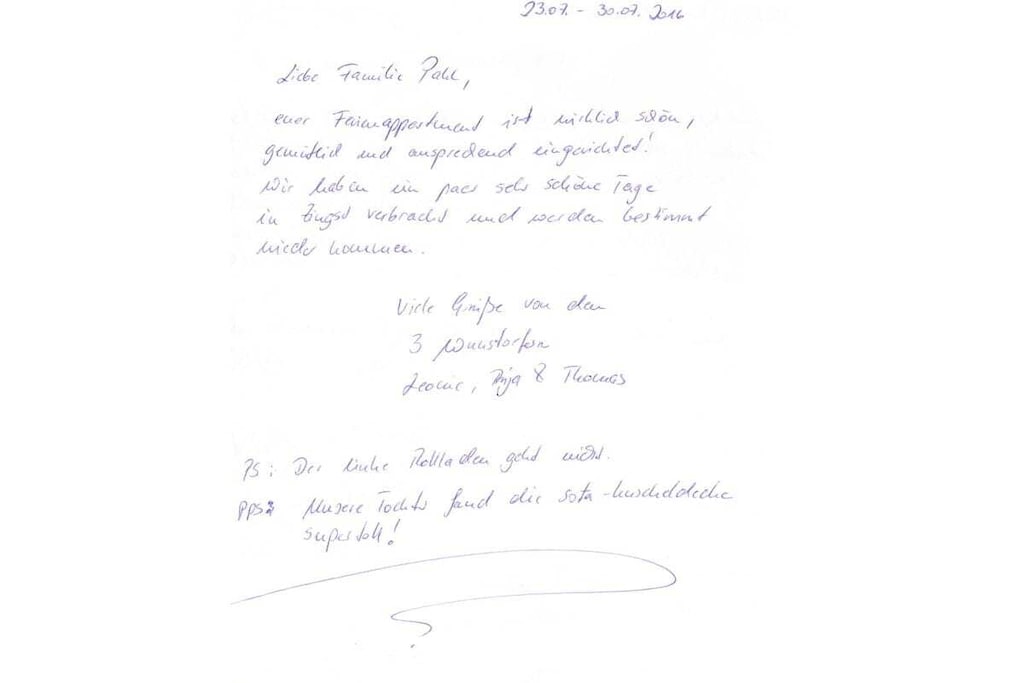 23.07. - 30.07. 2016
Liebe Familie Pahl,
euer Ferienappartment ist wirklich schön,
gemütlich und ansprechend eingerichtet!
Wir haben ein paar sehr schöne Tage
in Zingst verbracht und werden bestimmt
wieder kommen.
Viele Grüße von den
3 Wunstorfern
Leonie, & Thomas
PS: Der linke Rollladen geht nicht.
PPS: Unsere Tochter fand die Sofa-Kuscheldecke
supertoll!